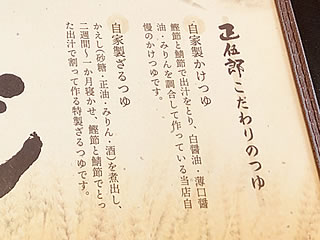 正伍郎こだわりのつゆ
自家製かけつゆ
鰹節と鯖節で出汁をとり、白醤油・薄口醤
油・みりんを調合して作っている当店自
慢のかけつゆです。
自家製ざるつゆ
かえし（砂糖・正油・みりん・酒）を煮出し、
二週間~一か月寝かせ、鰹節と鯖節でとっ
た出汁で割って作る特製ざるつゆです。